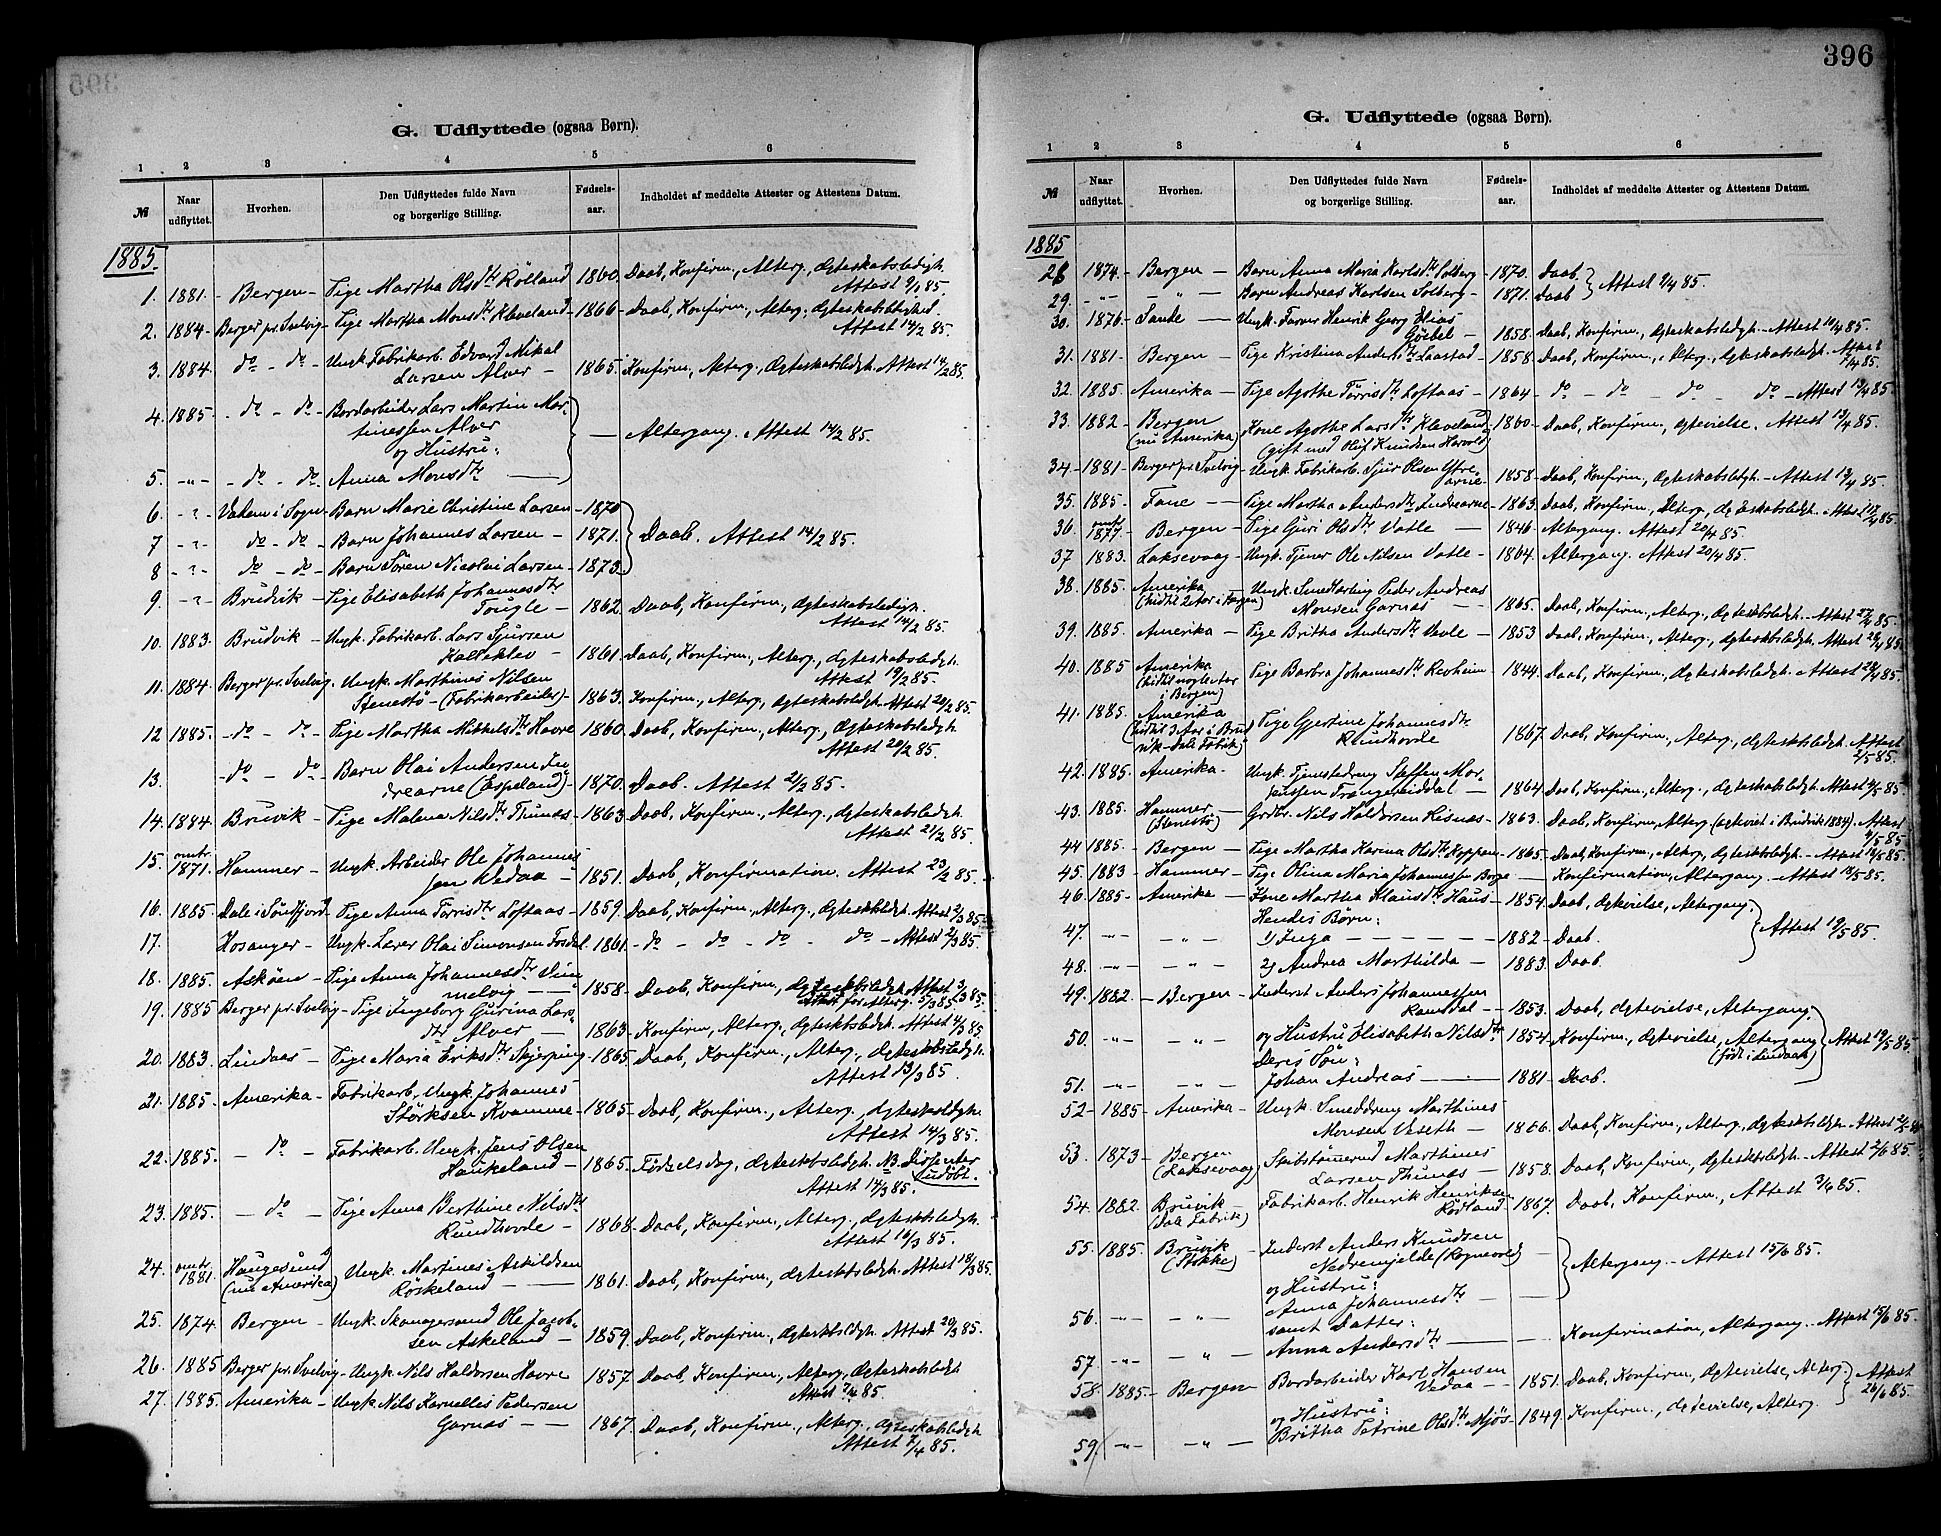 396
G. Udflyttede (ogsaa Børn).
1 2 3 4 5 6
№ Naar udflyttet. Hvorhen. Den Udflyttedes fulde Navn og borgerlige Stilling. Fødselsaar. Indholdet af meddelte Attester og Attestens Datum.
1885.
1. 1881. - Bergen - Pige Martha Olsdtr Rölland 1860. Daab, Konfirm., Alterg., Ægteskabsledigh.
Attest 9/1 85.
2. 1884 - Berger pr. Svelvig - Pige Martha Monsdtr Kleveland - 1866 - Daab, Konfirm., Alterg., Ægteskabsledighed.
Attest 14/2 85.
3. 1884. do - do - Ungk. Fabrikarb. Edvard Mikal
Larsen Alver - 1865. Konfirm., Alterg., Ægteskabsledgh. Attest 14/2 85.
4. 1885. - do - do - Bordarbeider Lars Martin Mar-
tinessen Alver
og Hustru: - Altergang. Attest 14/2 85.
5. -"- - do - do. Anna Monsdtr
6. - ? - i Sogn - Barn Marie Christine Larsen - 1870
7 - ? - do - do - Barn Johannes Larsen - 1871. Daab. Attest 14/2 85.
8 - ? - do - do - Barn Sören Nicolai Larsen - 1873.
9. - ? - Brudvik - Pige Elisabeth Johannesdtr
Tougle - 1862. Daab, Konfirm., Ægteskabsledigh.
Attest 14/2 85.
10. 1883. Brudvik - Ungk. Fabrikarb. Lars Sjursen
Kalleklev - 1861. Daab, Konfirm., Alterg., Ægteskabsledgh.
Attest 19/2 85.
11. 1884. Berger pr. Svelvig. Ungk. Marthines Nilsen
Stenestö - (Fabrikarbeider) - 1863. Konfirm., Alterg., Ægteskabsledgh. Attest 20/2 85.
12 1885. - do - do. - Pige Martha Mikkelsdtr Havre 1860. Daab, Konfirm., Alterg., Ægteskabsledgh
Attest 20/2 85.
13. - do - do - Barn Olai Andersen In-
drearne (Espeland) - 1870. Daab. Attest 21/2 85.
14. 1884. Bruvik - Pige Malena Nilsdtr Thunæs - 1863 Daab, Konfirm., Alterg., Ægteskabsledgh
Attest 21/2 85.
15. omtr. 1871. Hammer - Ungk. Arbeider Ole Johannes
sen Vedaa - 1851. Daab, Konfirmation. Attest 23/2 85.
16. 1885 Dale i Söndfjord Pige Anna Torrisdtr Loftaas - 1859. Daab, Konfirm., Alterg., Ægteskbsledgh. Attest 2/3 85.
17. Hosanger - Ungk. Lærer Olai Simonsen Fosdal 1861. - do - do - do - do - Attest 2/3 85.
18. 1885. Asköen - Pige Anna Johannesdtr
melvig - 1858 - Daab, Konfirm., Ægteskbsledgh. Attest 3/3 85.
Attest for Alterg. 5/3 85
19. 1885 Berger pr. Svelvig - Pige Ingeborg Gurina Lars-
dtr Alver - 1863 - Konfirm., Alterg., Ægteskbsledgh. Attest 4/3 85
20. 1883. Lindaas - Pige Maria Eriksdtr Skjerping - 1865 - Daab, Konfirm., Alterg., Ægteskabsledgh.
Attest 13/3 85.
21. 1885. Amerika - Fabrikarb. Ungk. Johannes
Störksen Kvamme - 1865 - Daab, Konfirm., Alterg., Ægteskabsledgh.
Attest 14/3 85.
22. 1885. - do - Fabrikarb. Ungk. Jens Olsen
Haukeland - 1865 - Födselsdag, Ægteskabsledgh. NB. Dissenter
udöbt.
Attest 14/3 85.
23. 1885. - do - Pige Anna Berthine Nilsdtr
Rundhovde - 1868. Daab, Konfirm., Alterg., Ægteskbsledgh.
Attest 16/3 85.
24. omtr. 1881 Haugesund (nu Amerika) Ungk. Martines Askildsen
Röskeland - 1861. Daab, Konfirm., Alterg., Ægteskbsledgh. Attest 18/3 85.
25. 1874. Bergen - Ungk. Skomagersvend Ole Jacob-
sen Askeland - 1859. Daab, Konfirm., Ægteskbsledgh. Attest 20/3 85.
26. 1885 Berger pr. Svelvig - Ungk. Nils Haldorsen Havre 1857 Daab, Konfirm., Alterg., Ægteskabsledgh
Attest 7/4 85.
27. 1885. Amerika - Ungk. Nils Kornelius Pedersen
Garnæs - 1867. Daab, Konfirm., Alterg., Ægteskabsledgh
Attest 7/4 85.
G. Udflyttede (ogsaa Børn).
1 2 3 4 5 6
№ Naar udflyttet. Hvorhen. Den Udflyttedes fulde Navn og borgerlige Stilling. Fødselsaar. Indholdet af meddelte Attester og Attestens Datum.
1885
28 1874. - Bergen - Barn Anna Maria Karlsdtr Solberg - 1870. Daab. Attest 9/4 85.
29. -"- - " - Barn Andreas Karlsen Solberg - 1871. Daab
30. 1876. Sande - Ungk. Farver Henrik Georg Elias
Göebel - 1858. Daab, Konfirm., Ægteskabsledgh. - Attest 10/4 85.
31. 1881 - Bergen - Pige Kristina Andersdtr Laastad - 1858. Daab, Konfirm., Alterg., Ægteskabsledgh. Attest
9/4 85.
32. 1885. Amerika - Pige Agothe Törrisdtr Loftaas - 1864 - do - do - do - do - Attest 13/4 85.
33. 1882 - Bergen (nu Amerika) Kone Agothe Larsdtr Kleveland
(gift med Oluf Knudsen Havold) - 1860 - Daab, Konfirm., Ægtevielse. Attest 13/4 85.
34 - 1881 - Berger pr. Svelvig - Ungk. Fabrikarb. Sjur Olsen Ytre-
arne - 1858 - Daab, Konfirm., Ægteskabsledgh. - Attest 17/4 85.
35. 1885. Fane - Pige Martha Andersdtr Indrearne - 1863. Daab, Konfirm., Alterg., Ægteskabsledgh. Attest 17/4 85.
36. omtr. 1877. - Bergen - Pige Guri Olsdtr Vatle - 1846 - Altergang. Attest 20/4 85.
37 1883. Laksevaag - Ungk. Tjener Ole Nilsen Vatle - 1864 - Altergang. Attest 20/4 85.
38. 1885. Amerika (hidtil 2 Aar i Bergen) Ungk. Smedlærling Peder Andreas
Monsen Garnæs - 1865. Daab, Konfirm., Alterg., Ægteskbsledgh. - Attest 27/4 85.
39. 1885. Amerika - Pige Britha Andersdtr Vevle - 1853 Daab, Konfirm., Alterg., Ægteskbsledgh. Attest 28/4 85
40. 1885 Amerika (hidtil nogle Aar i Bergen) Pige Barbra Johannesdtr Revheim - 1844. Daab, Konfirm., Ægteskabsledgh. - Attest 29/4 85.
41. 1885. Amerika (hidtil 3 Aar i Brud
vik - Dale Fabrik) Pige Gjertine Johannesdtr
Rundhovde 1867. Daab, Konfirm., Alterg., Ægteskbsledgh. Attest
2/5 85.
42. 1885. - Amerika - Ungk. Tjenestedreng Steffen Mor-
tensen Trængereiddal - 1864 Daab, Konfirm., Alterg., Ægteskabsledgh. Attest 4/5 85.
43. 1885. Hammer (Stenestö) Grdbr. Nils Haldorsen Hisnæs - 1863. Daab, Konfirm., Alterg. (Ægteviet i Brudvik 1884). Attest
4/5 85
44 1885. - Bergen - Pige Martha Karina Olsdtr Koppen - 1865 - Daab, Konfirm., Alterg., Ægteskbsledgh. - Attest 12/5 85.
45. 1883 - Hammer - Pige Olina Maria Johannessen Borge - Konfirmation, Altergang. - Attest 13/5 85.
46 - 1885 - Amerika - Kone Martha Klausdtr Haus - 1854. Daab, Ægtevielse, Altergang.
Hendes Börn:
47. -"- - " - 1) Inga - 1882 - Daab. Attest 19/5 85.
48. -"- - " - 2) Andrea Marthilda - 1883. Daab.
49. 1882 - Bergen - Inderst Anders Johannessen
Ramsdal - 1853. Daab, Ægtevielse, Altergang.
50. -"- - " - og Hustru Elisabeth Nilsdtr 1854. Konfirm., Ægtevielse, Altergang Attest 19/5 85.
(född i Lindaas)
Deres Sön:
51. -"- - " - Johan Andreas - 1881 - Daab.
52 - 1885 - Amerika - Ungk. Smeddreng Marthines
Monsen Veseth - 1866 - Daab, Konfirm., Alterg., Ægteskabsledgh. - Attest
53. 1873 - Bergen (Laksevaag) Skibstömmermd Marthines
Larsen Thunæs - 1858. Daab, Konfirm., Ægteskbsledgh. - Attest 2/6 85.
54. 1882. Bruvik (Dale Fabrik) Fabrikarb. Henrik Henriksen
Rödland 1867. Daab, Konfirm., Attest 3/6 85.
55. 1885. Bruvik (Stokke) Inderst Anders Knudsen
Nedremjelde (Rognevold)
og Hustru: Altergang - Attest 15/6 85.
56. -"- - " - Anna Johannesdtr
samt Datter:
57. -"- - " - Anna Andersdtr - Konfirmation, Altergang. - Attest 15/6 85.
58. 1885 - Bergen Bordarbeider Karl Hansen
Vedaa - 1851. Daab, Konfirm., Ægtevielse, Alterg. Attest
26/6 85.
og Hustru:
59. -"- - " - Britha Katrine Olsdtr Mjös - 1849 - Konfirm., Ægtevielse, Alterg.